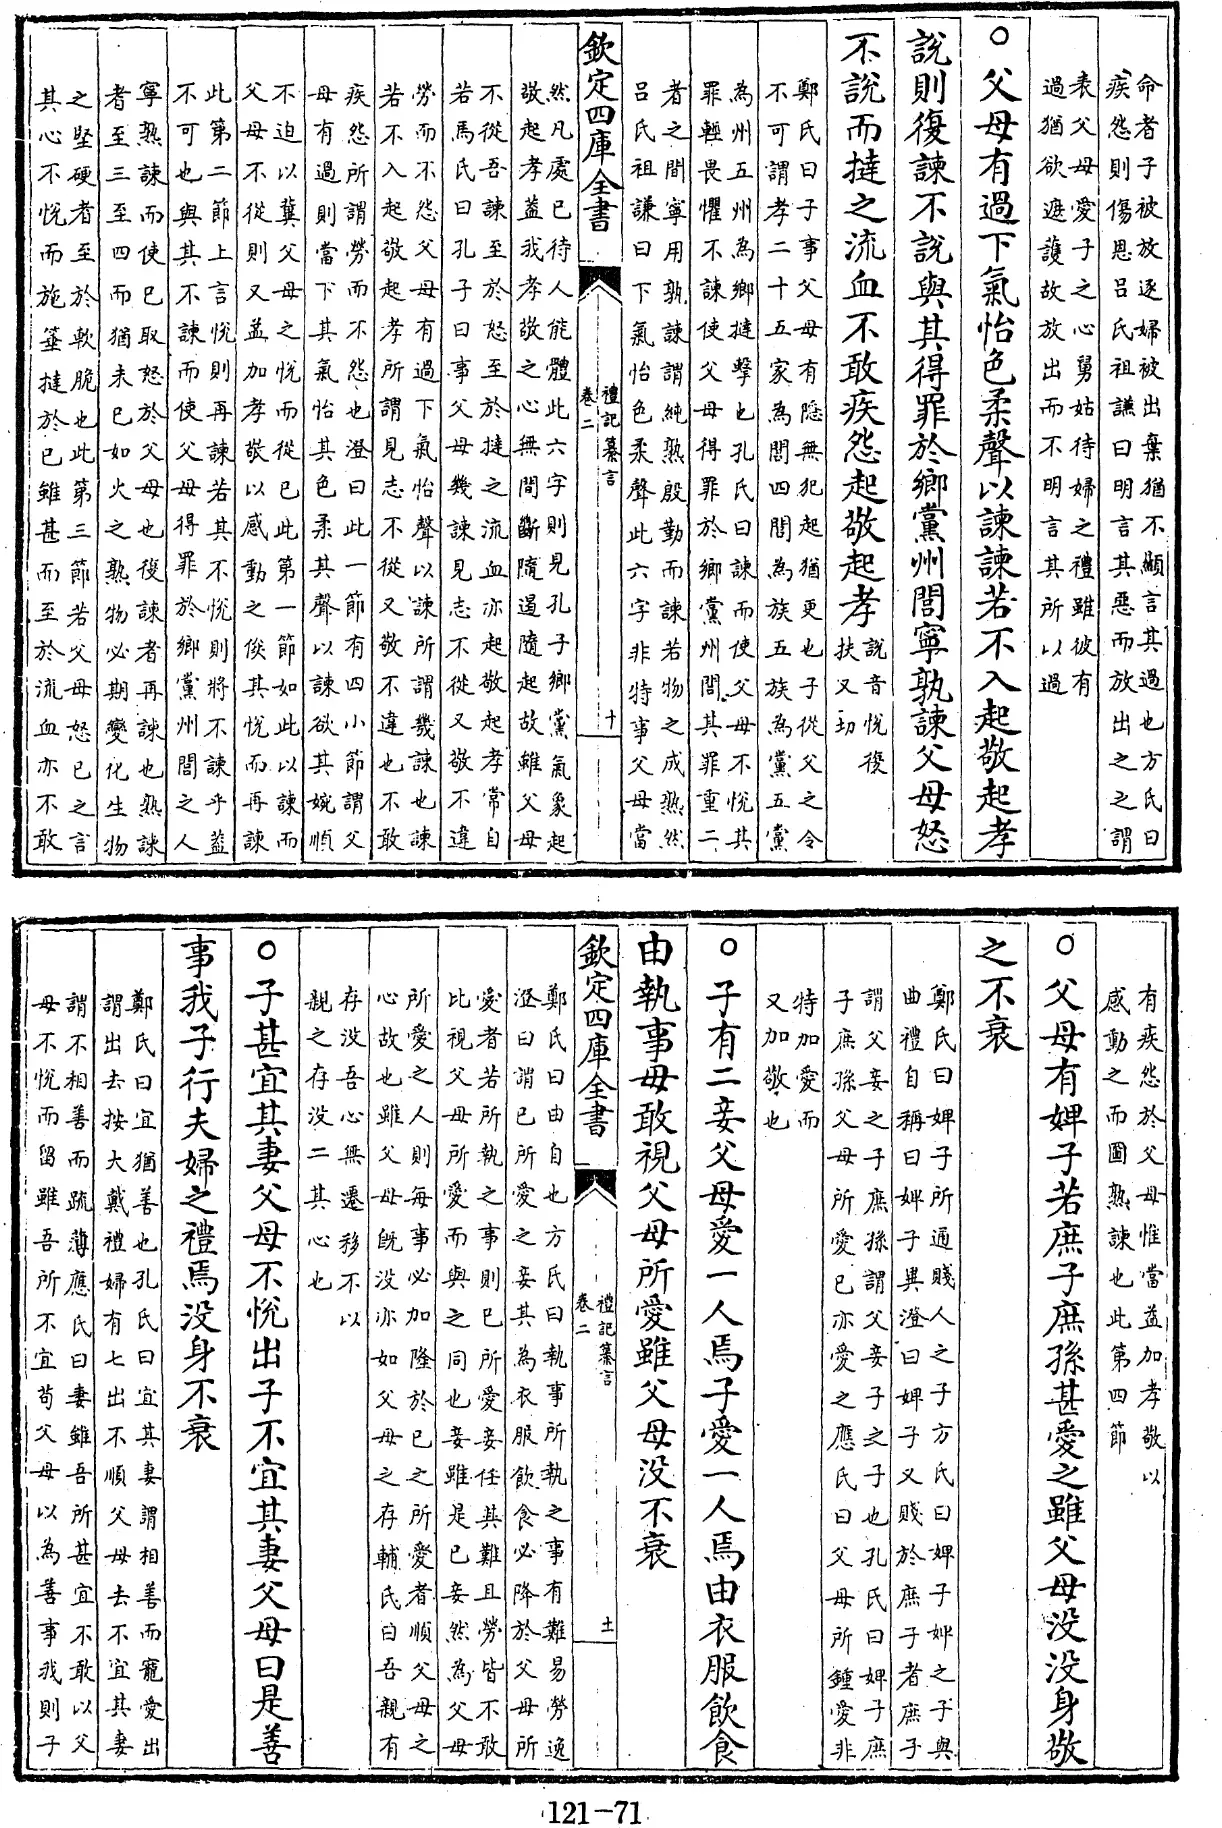 命者子被放逐婦被出棄猶不顯言其過也方氏曰
疾怨則傷恩吕氏祖謙曰明言其惡而放出之之謂
表父母愛子之心舅姑待婦之禮雖彼有
過猶欲遮護故放出而不明言其所以過
○父母有過下氣怡色柔聲以諫諫若不入起敬起孝
說則復諫不說與其得罪於鄉黨州閭寧孰諫父母怒
不說而撻之流血不敢疾怨起敬起孝
說音悅復
扶又切
鄭氏曰子事父母有隠無犯起猶更也子從父之令
不可謂孝二十五家為閭四閭為族五族為黨五黨
為州五州為鄉撻擊也孔氏曰諫而使父母不悅其
罪輕畏懼不諫使父母得罪於鄉黨州閭其罪重二
者之間寧用孰諫謂純熟殷勤而諫若物之成熟然
吕氏祖謙曰下氣怡色柔聲此六字非特事父母當
欽定四庫全書
禮記纂言
卷二
十
然凡處已待人能體此六字則見孔子鄉黨氣象起
敬起孝蓋我孝敬之心無間斷隨過隨起故雖父母
不從吾諫至於怒至於撻之流血亦起敬起孝常自
若馬氏曰孔子曰事父母幾諫見志不從又敬不違
勞而不怨父母有過下氣怡聲以諫所謂幾諫也諫
若不入起敬起孝所謂見志不從又敬不違也不敢
疾怨所謂勞而不怨也澄曰此一節有四小節謂父
母有過則當下其氣怡其色柔其聲以諫欲其婉順
不迫以冀父母之悅而從已此第一節如此以諫而
父母不從則又益加孝敬以感動之俟其悅而再諫
此第二節上言悅則再諫若其不悅則將不諫乎蓋
不可也與其不諫而使父母得罪於鄉黨州閭之人
寧熟諫而使已取怒於父母也復諫者再諫也熟諫
者至三至四而猶未已如火之熟物必期變化生物
之堅硬者至於軟脆也此第三節若父母怒已之言
其心不悅而施箠撻於已雖甚而至於流血亦不敢
有疾怨於父母惟當益加孝敬以
感動之而圖熟諫也此第四節
○父母有婢子若庶子庶孫甚愛之雖父母没没身敬
之不衰
鄭氏曰婢子所通賤人之子方氏曰婢子婢之子與
曲禮自稱曰婢子異澄曰婢子又賤於庶子者庶子
謂父妾之子庶孫謂父妾子之子也孔氏曰婢子庶
子庶孫父母所愛已亦愛之應氏曰父母所鍾愛非
特加愛而
又加敬也
○子有二妾父母愛一人焉子愛一人焉由衣服飲食
由執事毋敢視父母所愛雖父母没不衰
鄭氏曰由自也方氏曰執事所執之事有難易勞逸
澄曰謂已所愛之妾其為衣服飲食必降於父母所
愛者若所執之事則已所愛妾任其難且勞皆不敢
比視父母所愛而與之同也妾雖是已妾然為父母
所愛之人則每事必加隆於已之所愛者順父母之
心故也雖父母既没亦如父母之存輔氏曰吾親有
存没吾心無遷移不以
親之存没二其心也
欽定四庫全書
禮記纂言
卷二
十一
○子甚宜其妻父母不悅出子不宜其妻父母曰是善
事我子行夫婦之禮焉没身不衰
鄭氏曰宜猶善也孔氏曰宜其妻謂相善而寵愛出
謂出去按大戴禮婦有七出不順父母去不宜其妻
謂不相善而疏薄應氏曰妻雖吾所甚宜不敢以父
母不悅而留雖吾所不宜苟父母以為善事我則子
121-71